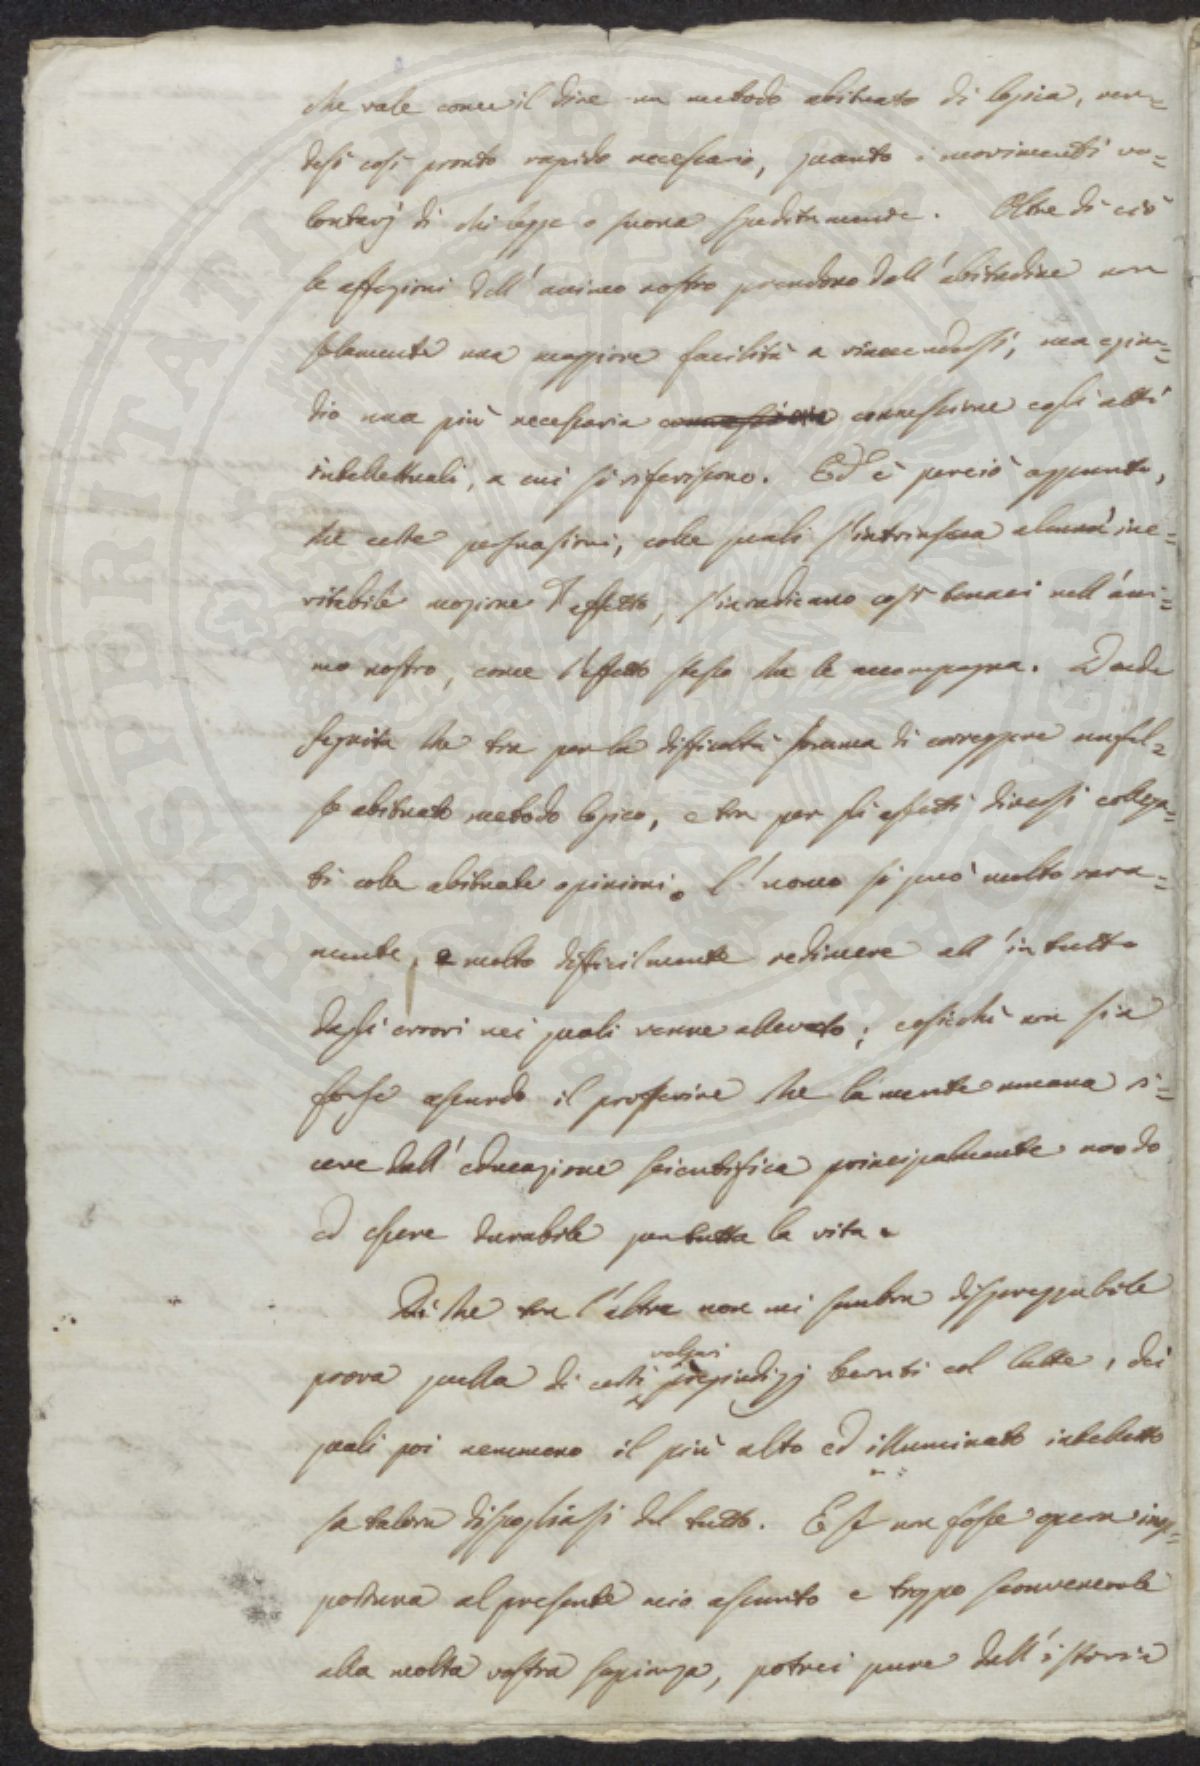 che vale come il dire un metodo abituato di logica, ren=
desi così pronto rapido necessario, quanto i movimenti vo=
lontarj di chi legge o suona speditamente. Oltre di ciò
le affezioni dell'animo nostro prendono dall'abitudine non
solamente una maggiore facilità a rinnovellarsi, ma ezian=
dio una più necessaria connessione cogli atti
intellettuali, a cui si riferiscono. Ed è perciò appunto,
che certe persuasioni, colle quali s'intrinseca alcuna ine=
vitabile mozione d'affetto, s'inradicano così tenaci nell'ani=
mo nostro, come l'affetto stesso che le accompagna. Donde
seguita che tra per la difficoltà somma di correggere un fal=
so abituato metodo logico, e tra per gli affetti diversi collega=
ti colle abituate opinioni, l'uomo si può molto rara=
mente, e molto difficilmente redimere all'intutto
dagli errori nei quali venne allevato; cosicchè non sia
forse assurdo il profferire che la mente umana ri=
ceve dall'educazione scientifica principalmente modo
ed essere durabile per tutta la vita.
Di che tra l'altre non mi sembra dispregiabile
prova quella di certi volgari pregiudizj bevuti col latte, dei
quali poi nemmeno il più alto ed illuminato intelletto
sa talora dispogliarsi del tutto. E se non fosse opera im=
portuna al presente mio assunto e troppo sconvenevole
alla molta vostra sapienza, potrei pure dall'istoria
PROSPERITATI PUBLICAE AUGENDAE